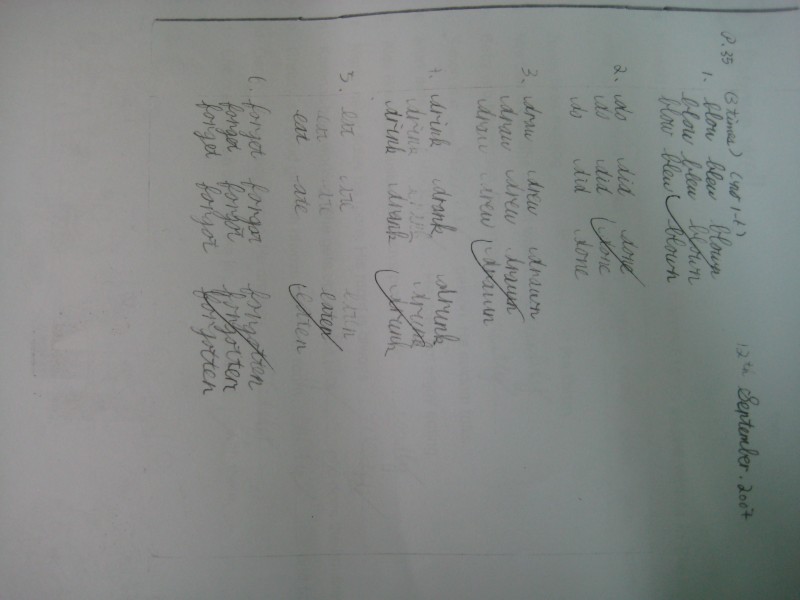 P.35 (3 times) (no 1-6) 12th September. 2007
1. blow blew blown
blow blew blown
blow blew blown
2. do did done
do did done
do did done
3. draw drew drawn
draw drew drawn
draw drew drawn
4. drink drank drunk
drink drank drunk
drink drank drunk
5. eat ate eaten
eat ate eaten
eat ate eaten
6. forget forgot forgotten
forget forgot forgotten
forget forgot forgotten